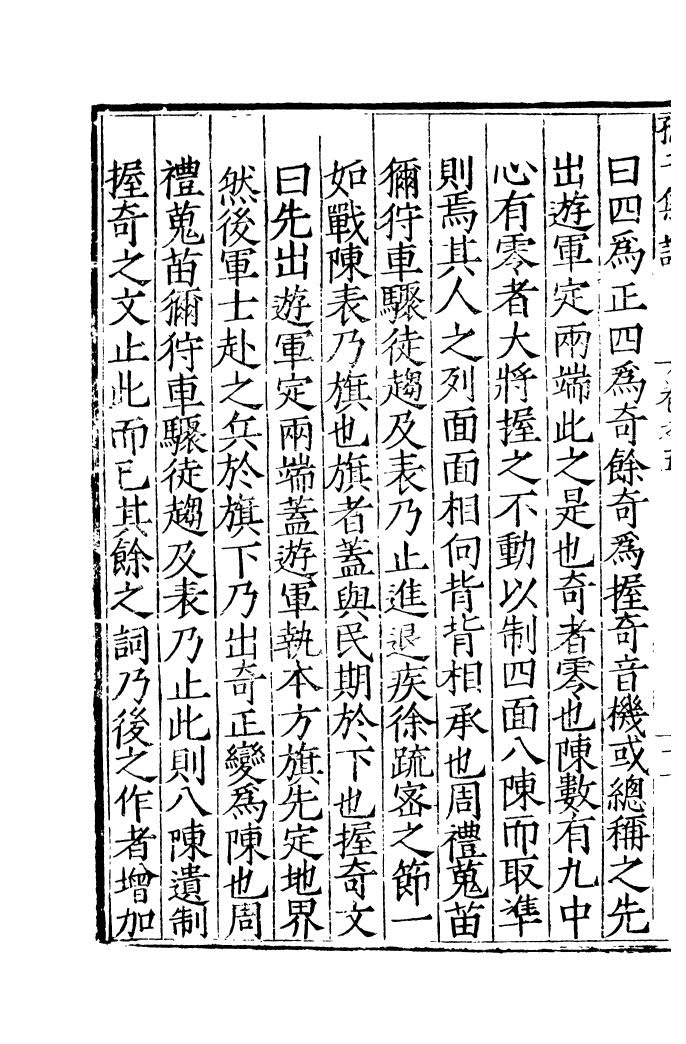 曰四爲正四爲奇餘奇爲握奇音機或總稱之先
出遊軍定兩端此之是也奇者零也陳數有九中
心有零者大將握之不動以制四面八陳而取準
則焉其人之列面面相向背背相承也周禮蒐苗
獮狩車驟徒趨及表乃止進退疾徐疏密之節一
如戰陳表乃旗也旗者蓋與民期於下也握奇文
曰先出遊軍定兩端蓋遊軍執本方旗先定地界
然後軍士赴之兵於旗下乃出奇正變爲陳也周
禮蒐苗獮狩車驟徒趨及表乃止此則八陳遺制
握奇之文止此而已其餘之詞乃後之作者增加